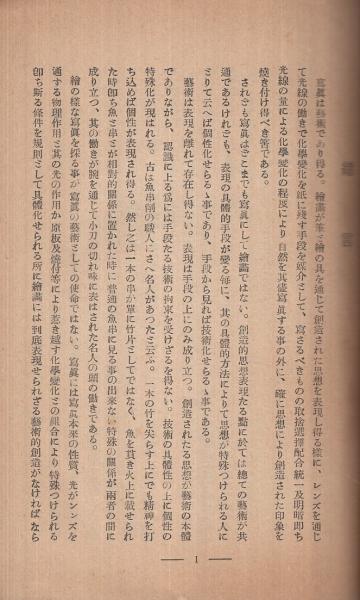 寫眞は藝術であり得る。繪畵が筆と繪の具を通じて創造された思想を表現し得る樣に、レンズを通じ
て光線の働きで化學變化を紙に殘す手段を媒介として、寫さるべきものの取捨選擇配合統一及明暗卽ち
光線の量による化學變化の程度により自然を其儘寫眞する事の外に、確に思想により創造された印象を
燒き付け得べき筈である。
されども寫眞はどこまでも寫眞にして繪畵ではない。創造的思想表現たる點に於ては總ての藝術が共
通であるけれども、表現の具體的手段が變る每に、其の具體的方法によりて思想が特殊つけられる人に
とりて云へば個性化せらるゝ事であり、手段から見れば技術化せらるゝ事である。
藝術は表現を離れて存在し得ない。表現は手段の上にのみ成り立つ。創造されたる思想が藝術の本體
でありながら、認識に上る爲には手段たる技術の拘束を受けざるを得ない。技術の具體性の上に個性の
特殊化が現はれる。古は魚串削の職人にさへ名人があつたと云ふ。一本の竹を尖らす上にでも精神を打
ち込めば個性が表現され得る。然し之は一本の串が單に竹片としてではなく、魚を貫き火上に載せられ
た時卽ち魚と串とが相對的關係に置かれた時に普通の魚串に見る事の出來ない特殊の關係が兩者の間に
成り立つ、其の働きが腕を通じて小刀の切れ味に表はされた名人の頭の働きである。
繪の樣な寫眞を採る事が寫眞の藝術としての使命ではない。寫眞には寫眞本來の性質、光がレンズを
通する物理作用と其の光の作用か原板及燒付等により惹き起す化學變化との組合により特殊つけられる
卽ち斯る條件を規則として具體化せられる所に繪畵には到底表現せられざる藝術的創造がなければなら
— 1 —